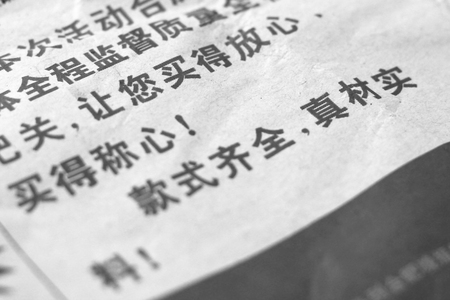 本次活动合
本全程监督质量全
把关,让您买得放心,
买得称心!
款式齐全,真材实
料!